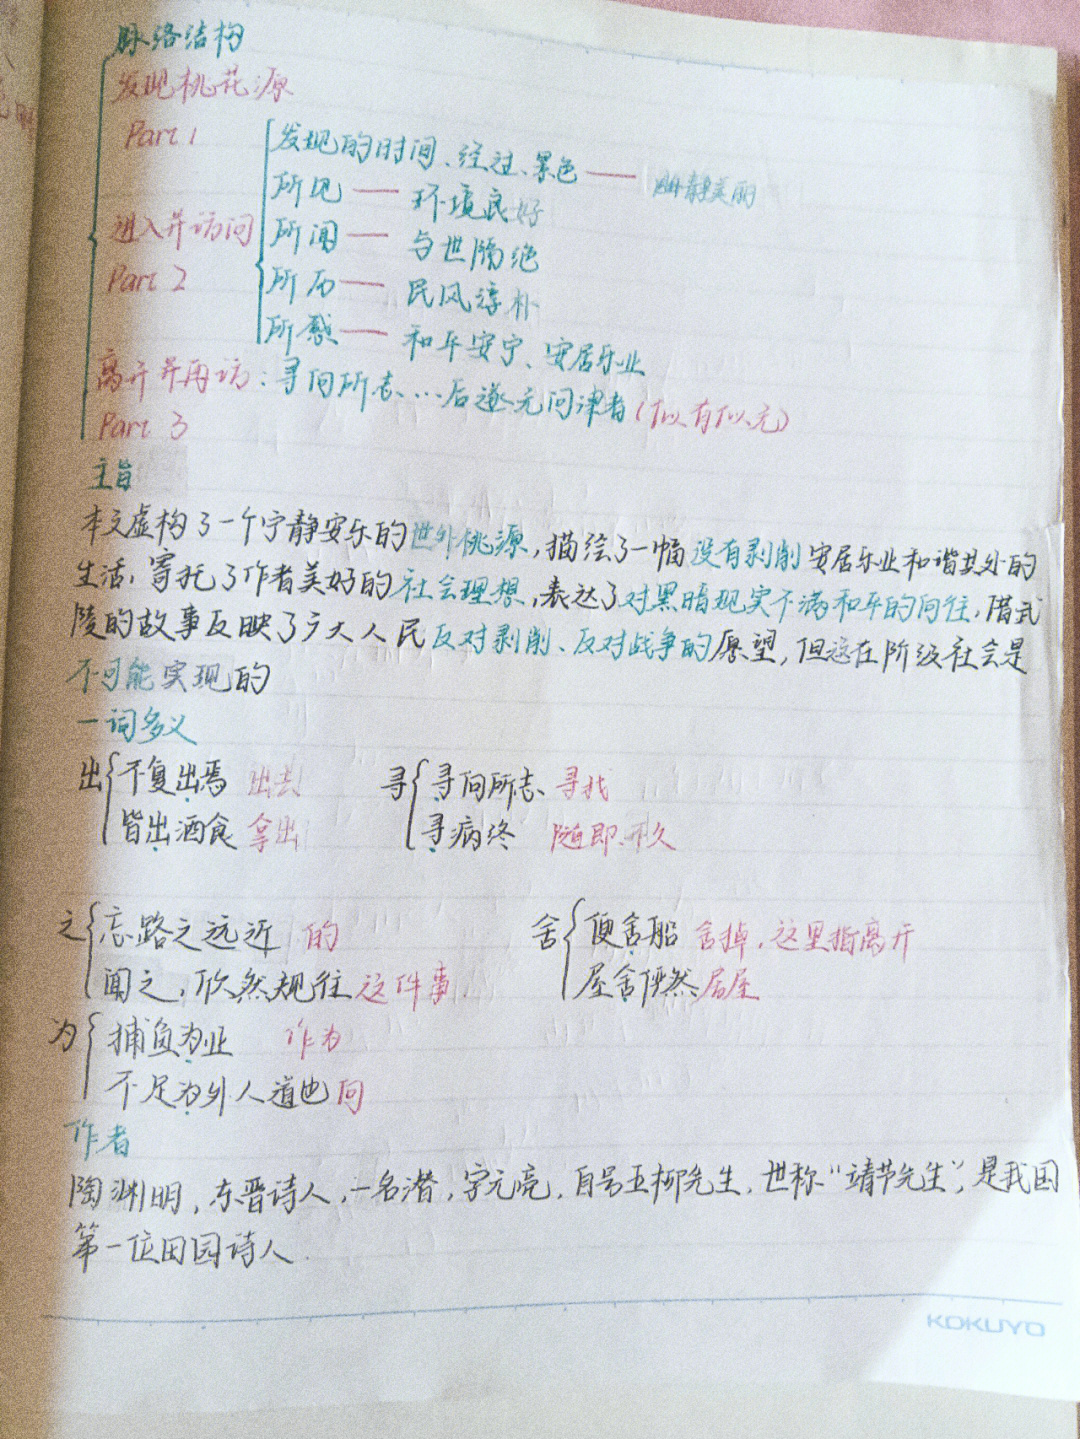 脉络结构
发现桃花源
Part 1
发现的时间、经过、景色——幽静美丽
所见——环境良好
进入并访问
所闻——与世隔绝
Part 2
所历——民风淳朴
所感——和平安宁、安居乐业
离开并再访：寻向所志…后遂无问津者（似有似无）
Part 3
主旨
本文虚构了一个宁静安乐的世外桃源，描绘了一幅没有剥削安居乐业和谐共处的
生活，寄托了作者美好的社会理想，表达了对黑暗现实不满和平的向往，借武
陵的故事反映了广大人民反对剥削、反对战争的愿望，但这在阶级社会是
不可能实现的
一词多义
出 不复出焉 出去
皆出酒食 拿出
寻 寻向所志 寻找
寻病终 随即、不久
之 忘路之远近 的
闻之，欣然规往 这件事
舍 便舍船 舍掉，这里指离开
屋舍俨然 居屋
为 捕鱼为业 作为
不足为外人道也 向
作者
陶渊明，东晋诗人，一名潜，字元亮，自号五柳先生，世称“靖节先生”，是我国
第一位田园诗人.
KOKUYO